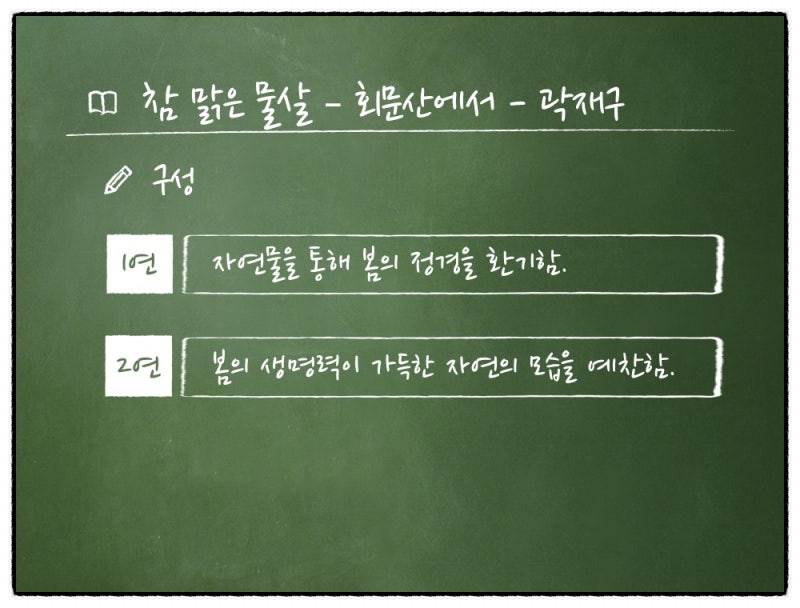 참 맑은 물살 - 회문산에서 - 곽재구
구성
1연
자연물을 통해 봄의 정경을 환기함.
2연
봄의 생명력이 가득한 자연의 모습을 예찬함.